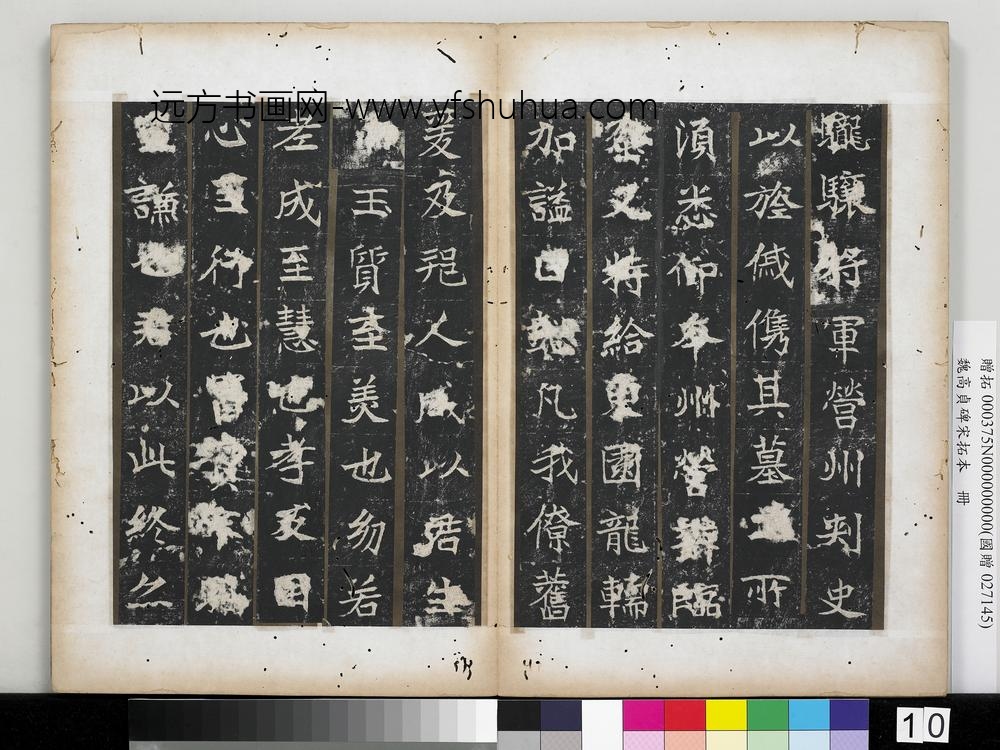 驤將軍營州刺史
以旌儀儁其墓所
須悉仰本州營辦臨
又特給園龍轜
加謚曰凡我僚舊
爰及邑人咸以君生
玉質至美也幼若
老成至慧也孝友因
心至行也富貴
謙也君以此終亦
远方书画网-www.yfshuhua.com
贈拓 000375N000000000(國贈 027145)
魏高貞碑宋拓本 冊
10